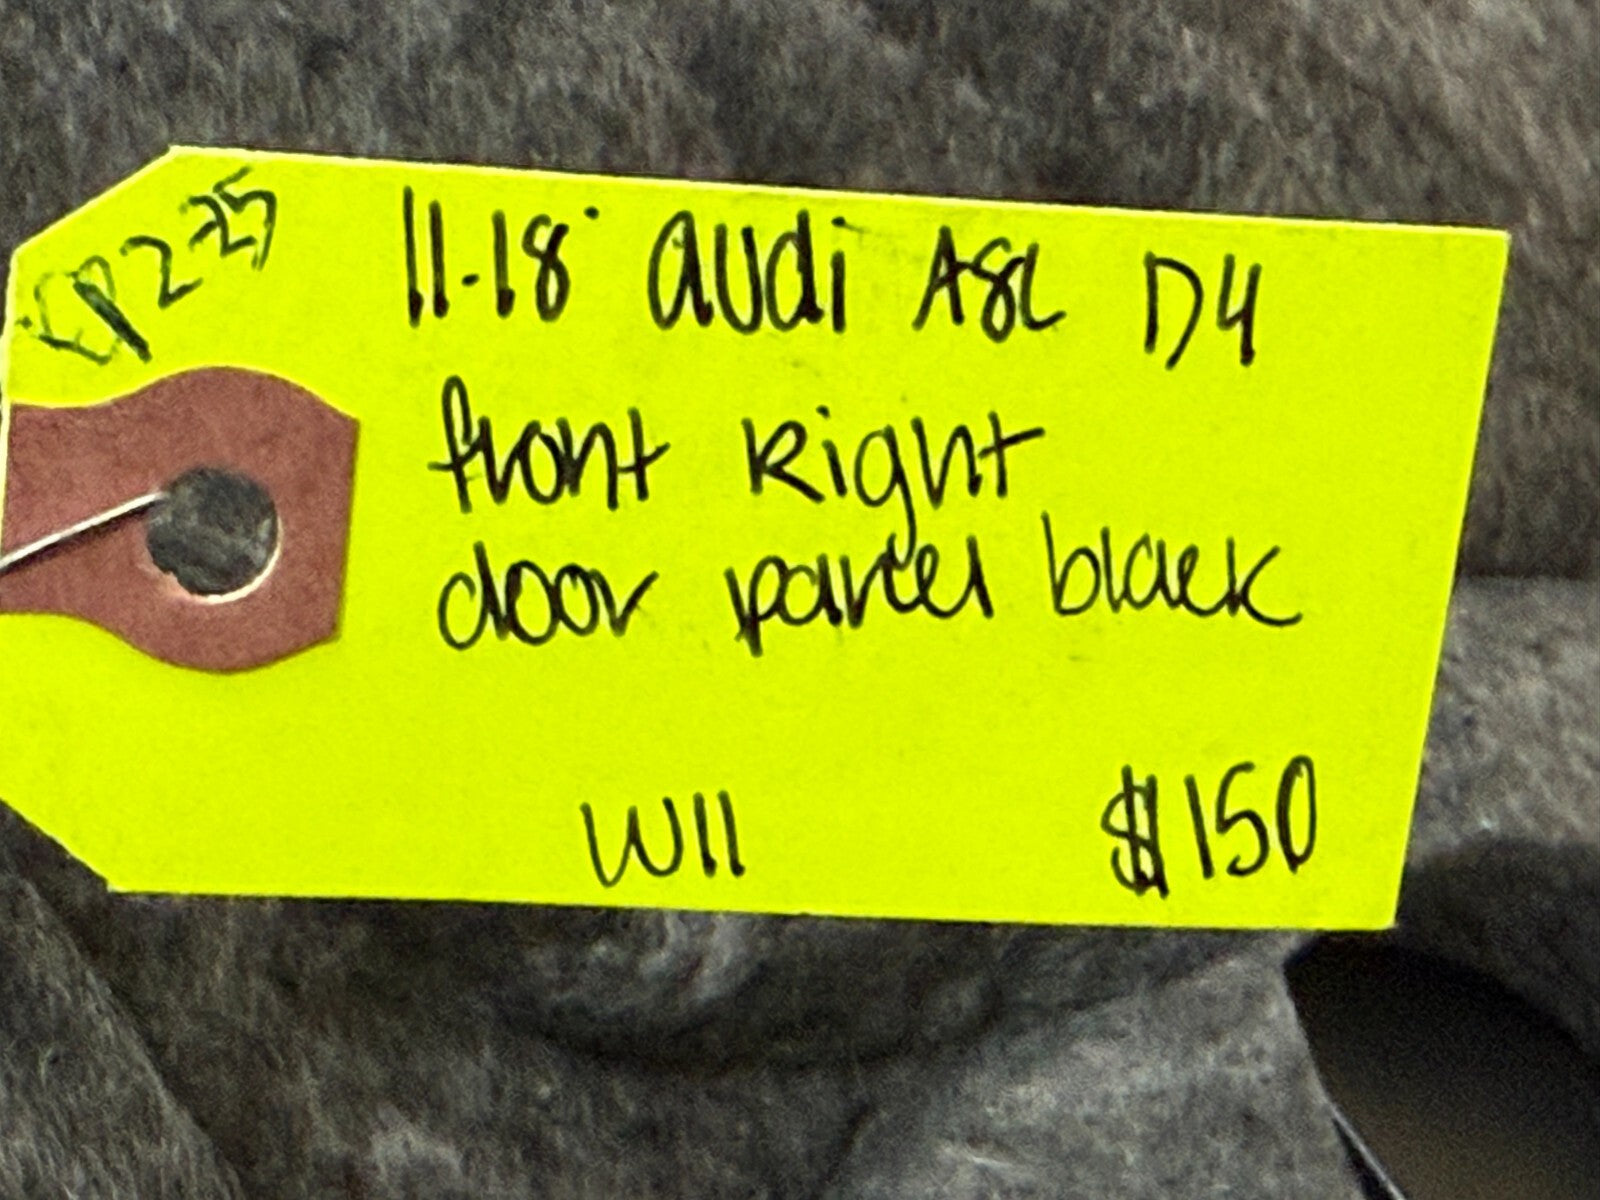 11-18 Audi A8L D4
front Right
door panel black
W11 $150